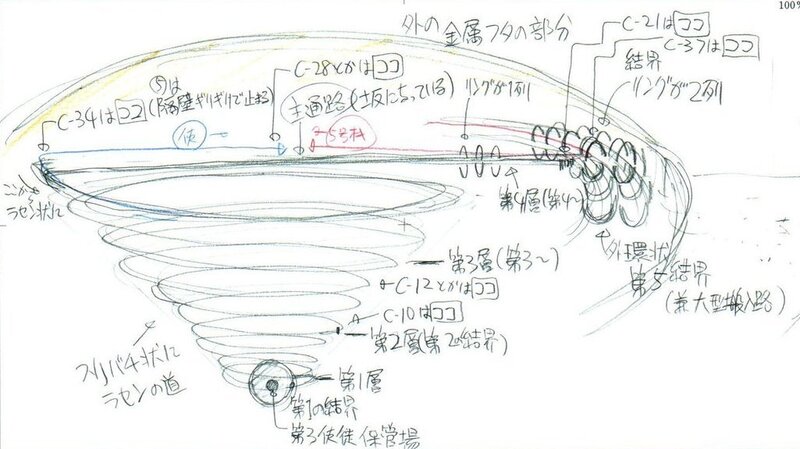 100%
外の金属フタの部分
C-21はココ
C-37はココ
結界
リングが2列
C-28とかはココ
⑤は
(隔壁ギリギリで止まる)
C-34はココ
主通路(坂になっている)
リングが1列
使
5号機
ここから
ラセン状に
第4層(第4〜)
外環状
第5結界
(兼大型搬入路)
第3層(第3〜)
C-12とかはココ
C-10はココ
第2層(第2の結界)
スリバチ状に
ラセンの道
第1層
第1の結界
第3使徒保管場